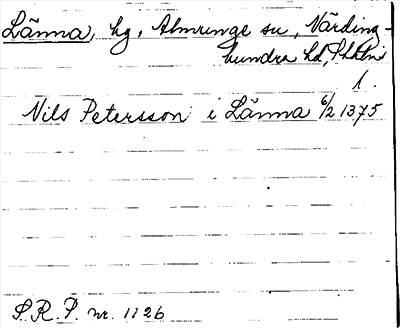 Länna, hg, Almunge sn, Närding-
hundra hd, Sthlms
l.
Nils Petersson i Länna 6/2 1375
S.R.P. nr. 1126